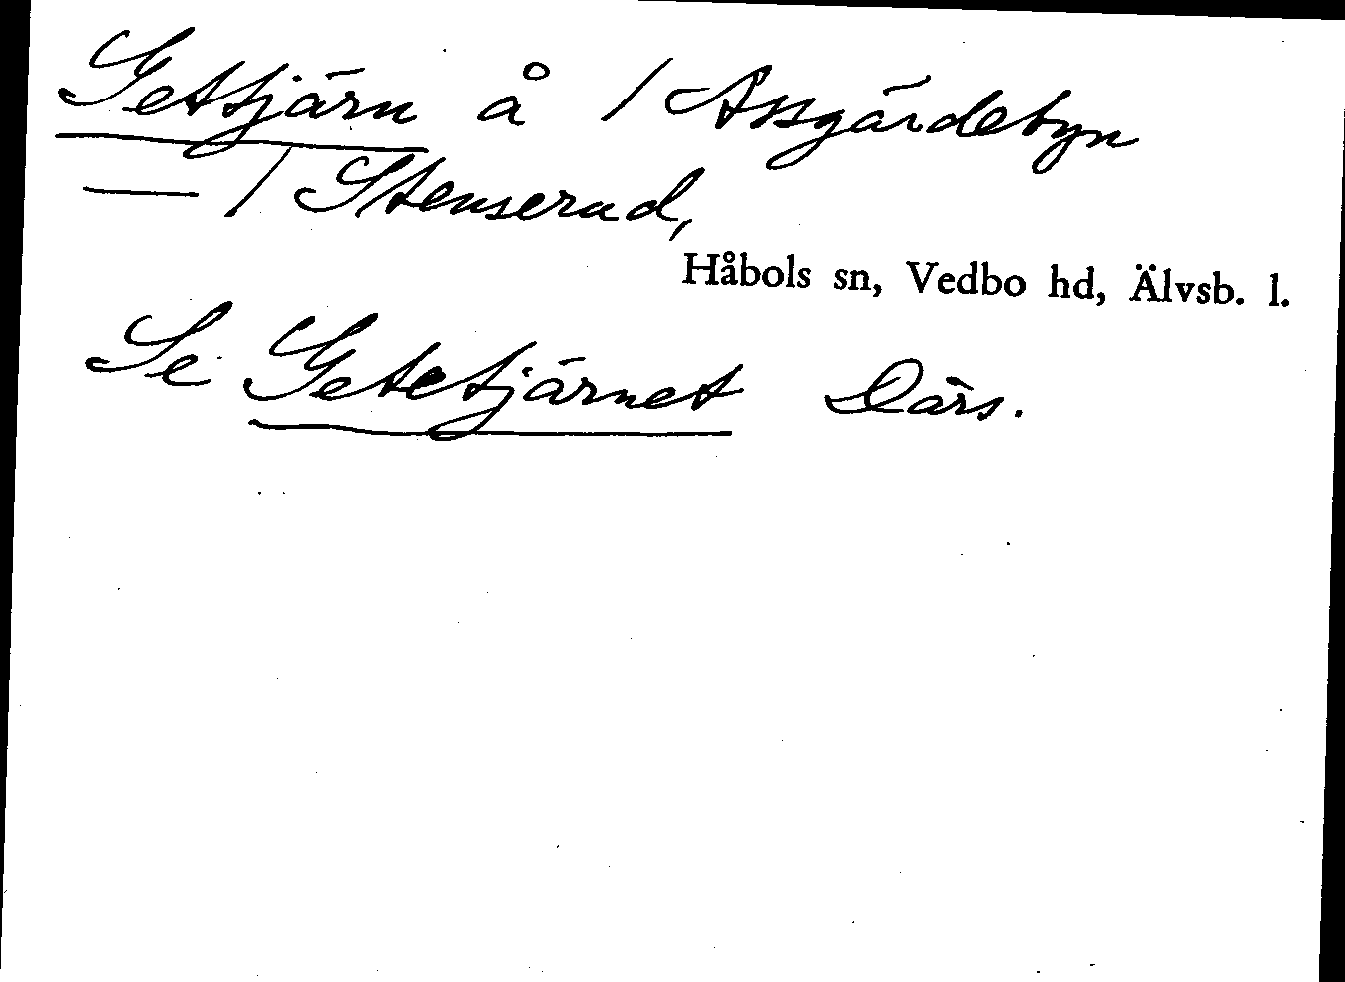 Gettjärn å / Assgärdebyn
— / Stenserud,
Håbols sn, Vedbo hd, Älvsb. l.
Se Getetjärnet Därs.